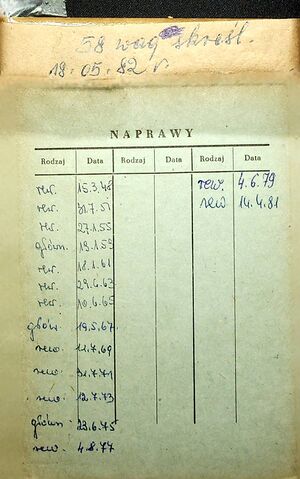 58 wag skreśl.
18.05.82 r.
NAPRAWY
Rodzaj Data Rodzaj Data Rodzaj Data
rew. 15.3.48 rew. 4.6.79
rew. 31.7.51 rew 14.4.81
rew. 27.1.55
główn. 19.1.59
rew. 18.1.61
rew. 29.6.63
rew. 10.6.65
główn. 19.5.67.
rew. 11.7.69
rew. 31.7.71
rew. 12.7.73
główn 23.6.75
rew. 4.8.77